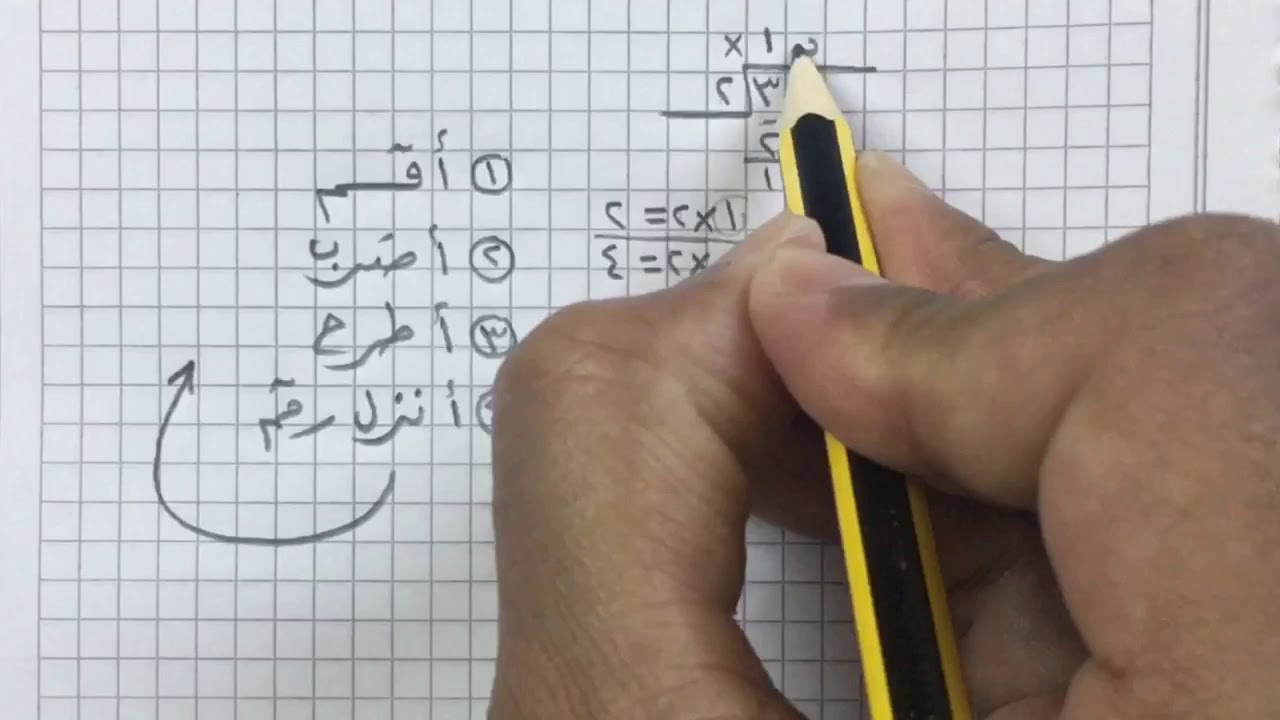 × ١
٢ ٣
٢
١
١ أقسم
٢ أضرب
٣ أطرح
أنزل رقم
١×٢=٢
×٢=٤